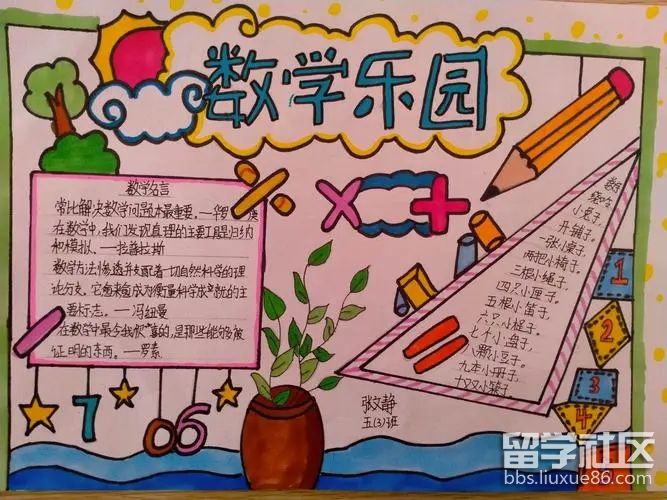 数学乐园
数学名言
常比解决数学问题本最重要。一
在数学中,我们发现真理的主要工具是归纳
和模拟。一拉普拉斯
数学方法惨透并支配着一切自然科学的理
论分支。它愈来愈成为衡量科学成就的主
要标志。一冯纽曼
在数学中最令我欣喜的,是那些能够被
证明的东西。一罗素
小兔子,
开铺子。
一张小桌子,
两把小椅子。
三根小绳子,
四只小匣子。
五根小笛子,
六只小棍子。
七个小盘子,
八颗小豆子。
九本小册子,
7
0
6
1
2
3
4
张文静
五(3)班
留学社区
bbs.liuxue86.com